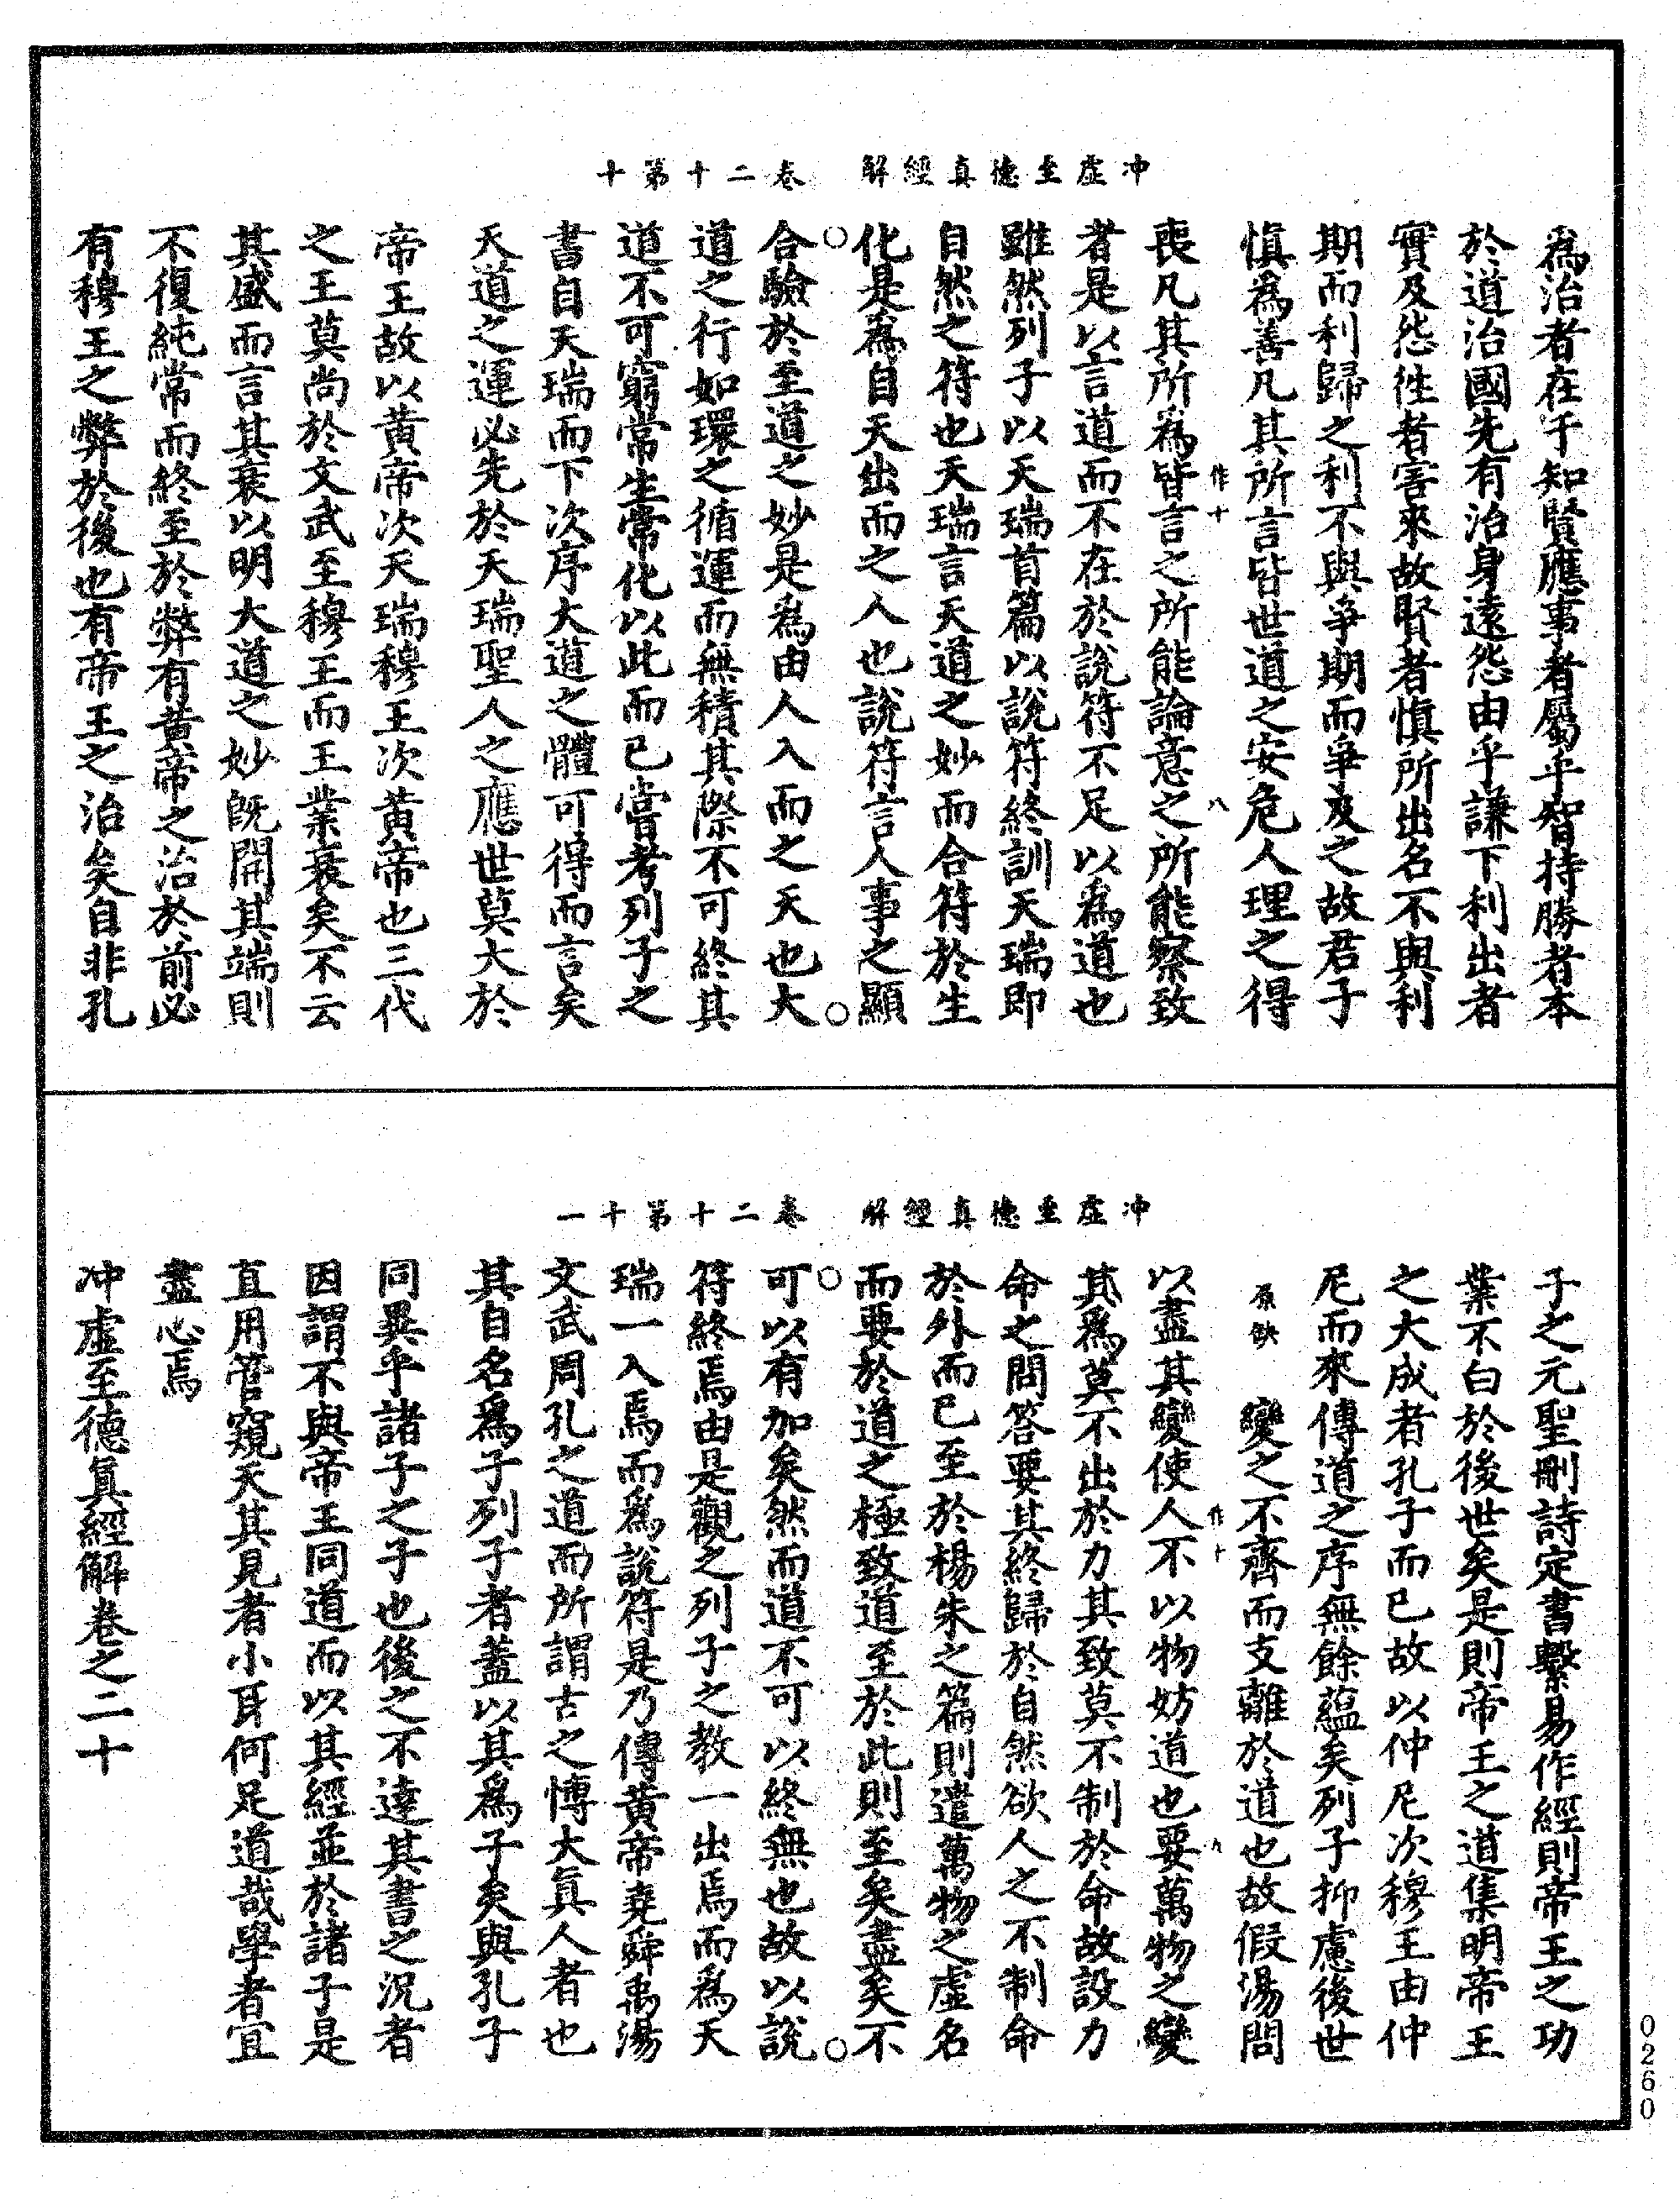 冲虛至德真經解　卷二十第十
為治者在于知賢應事者屬乎智持勝者本
於道治國先有治身遠怨由乎謙下利出者
實及怨往者害來故賢者慎所出名不與利
期而利歸之利不與爭期而爭及之故君子
慎為善凡其所言皆世道之安危人理之得
作十　八
喪凡其所為皆言之所能論意之所能察致
者是以言道而不在於說符不足以為道也
雖然列子以天瑞首篇以說符終訓天瑞即
自然之符也天瑞言天道之妙而合符於生
化是為自天出而之人也說符言人事之顯
合驗於至道之妙是為由人入而之天也大
道之行如環之循運而無積其際不可終其
道不可窮常生常化以此而已嘗考列子之
書自天瑞而下次序大道之體可得而言矣
天道之運必先於天瑞聖人之應世莫大於
帝王故以黃帝次天瑞穆王次黃帝也三代
之王莫尚於文武至穆王而王業衰矣不云
其盛而言其衰以明大道之妙既開其端則
不復純常而終至於弊有黃帝之治於前必
有穆王之弊於後也有帝王之治矣自非孔
冲虛至德真經解　卷二十第十一
子之元聖刪詩定書繫易作經則帝王之功
業不白於後世矣是則帝王之道集明帝王
之大成者孔子而已故以仲尼次穆王由仲
尼而來傳道之序無餘蘊矣列子抑慮後世
原缺　變之不齊而支離於道也故假湯問
作十　九
以盡其變使人不以物妨道也要萬物之變
其為莫不出於力其致莫不制於命故設力
命之問答要其終歸於自然欲人之不制命
於外而已至於楊朱之篇則遣萬物之虛名
而要於道之極致道至於此則至矣盡矣不
可以有加矣然而道不可以終無也故以說
符終焉由是觀之列子之教一出焉而為天
瑞一入焉而為說符是乃傳黃帝堯舜禹湯
文武周孔之道而所謂古之博大真人者也
其自名為子列子者蓋以其為子矣與孔子
同異乎諸子之子也後之不達其書之況者
因謂不與帝王同道而以其經並於諸子是
直用管窺天其見者小耳何足道哉學者宜
盡心焉
冲虛至德真經解卷之二十
0260